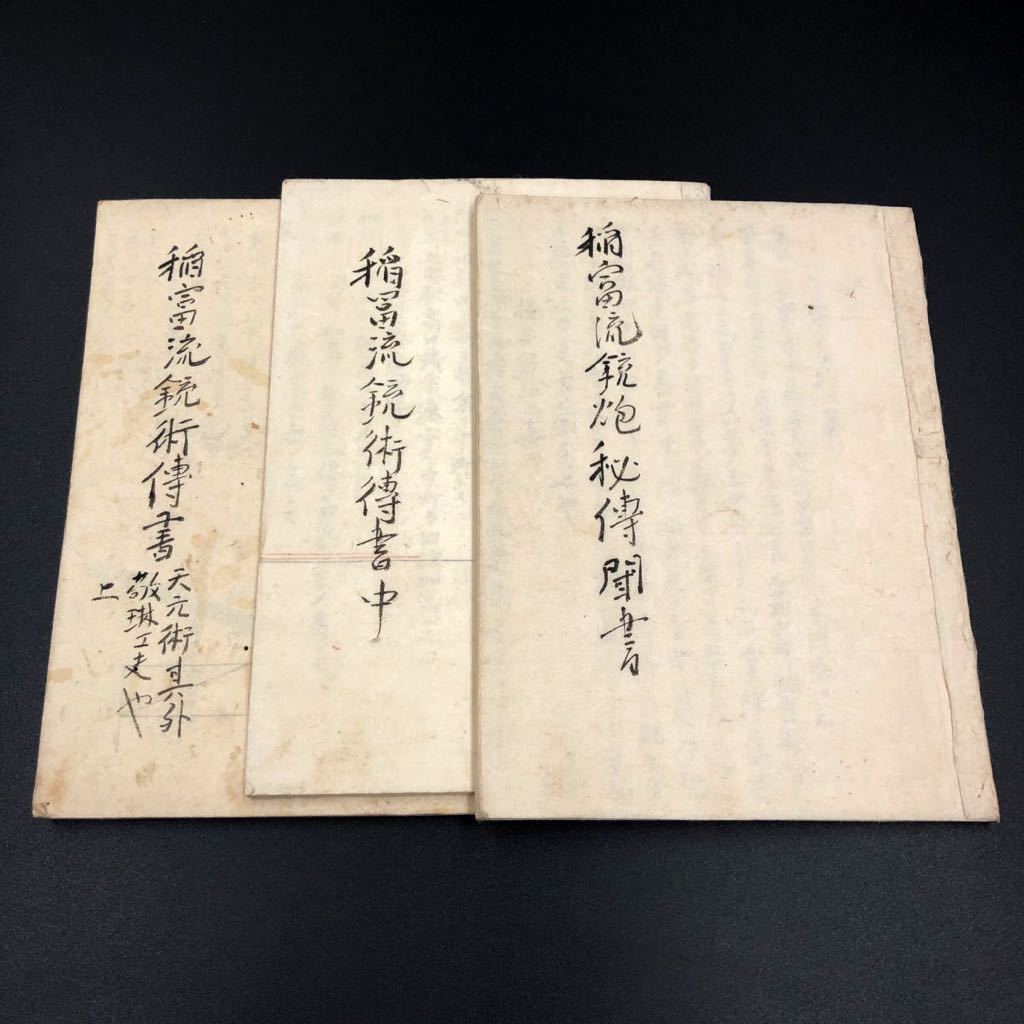 稲富流銃炮秘傳聞書
稲冨流銃術傳書中
稲富流銃術傳書
天元術其外
敬琳工夫也
上